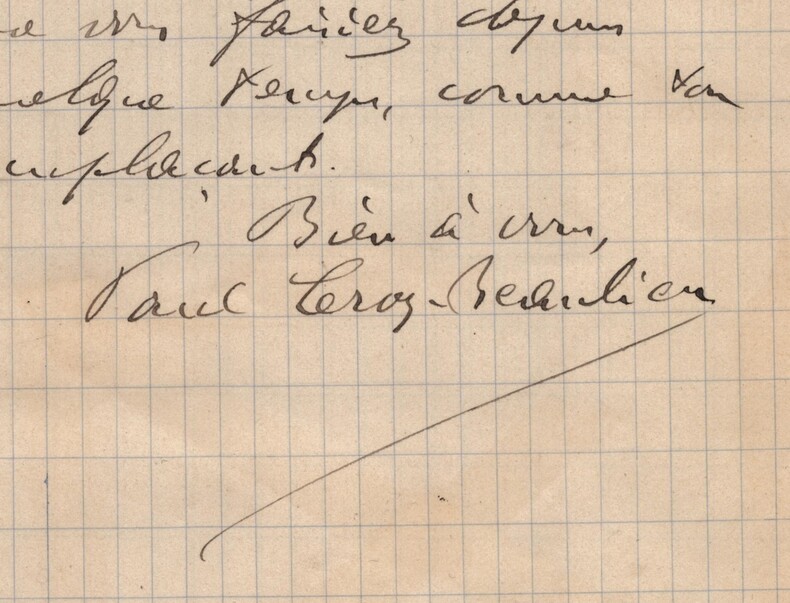 vous faisiez depuis
quelque temps, comme son
remplaçant.
Bien à vous,
Paul Leroy-Beaulieu